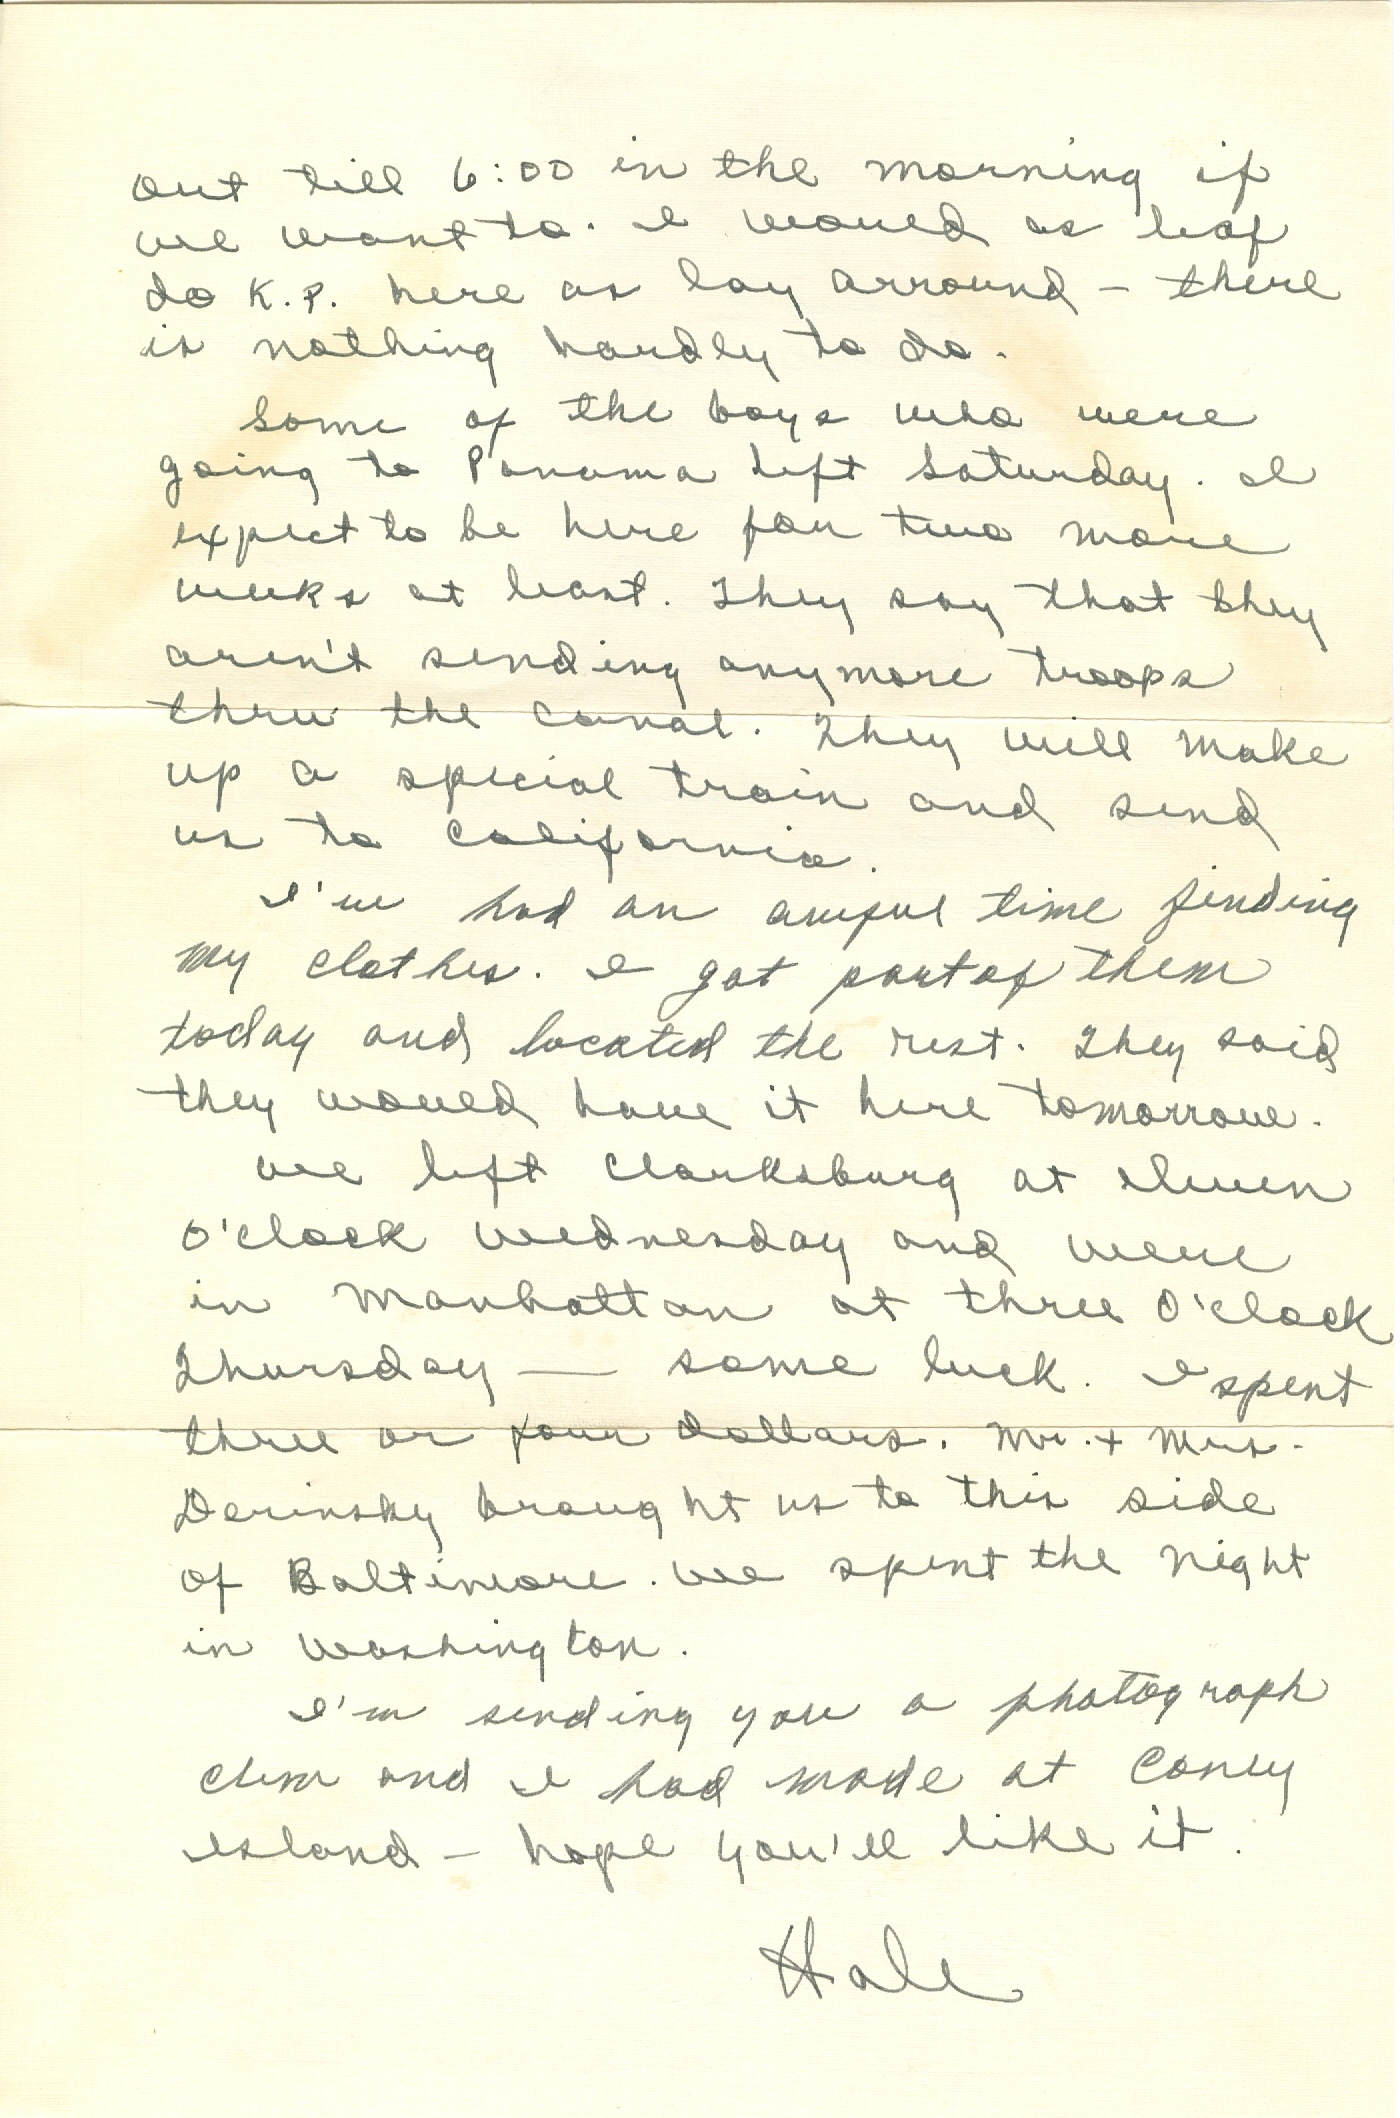 out till 6:00 in the morning if
we want to. I would as leaf
do K.P. here as lay arround - there
is nothing hardly to do.
Some of the boys who were
going to Panama left Saturday. I
expect to be here for two more
weeks at least. They say that they
aren't sending anymore troops
thru the canal. They will make
up a special train and send
us to California.
I've had an awful time finding
my clothes. I got part of them
today and located the rest. They said
they would have it here tomorrow.
We left Clarksburg at eleven
O'clock Wednesday and were
in Manhattan at three O'clock
Thursday — some luck. I spent
three or four dollars. Mr. + Mrs.
Derinsky brought us to this side
of Baltimore. We spent the night
in Washington.
I'm sending you a photograph
Clem and I had made at Coney
Island - hope you'll like it.
Hale